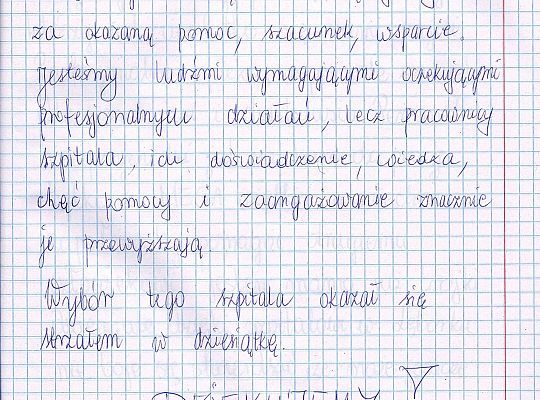 za okazaną pomoc, szacunek, wsparcie.
Jesteśmy ludźmi wymagającymi oczekującymi
profesjonalnych działań, lecz pracownicy
szpitala, ich doświadczenie, wiedza,
chęć pomocy i zaangażowanie znacznie
je przewyższają.
Wybór tego szpitala okazał się
strzałem w dziesiątkę.
DZIĘKUJEMY